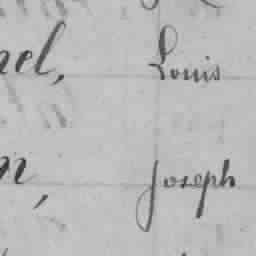 nel, Louis
n, Joseph